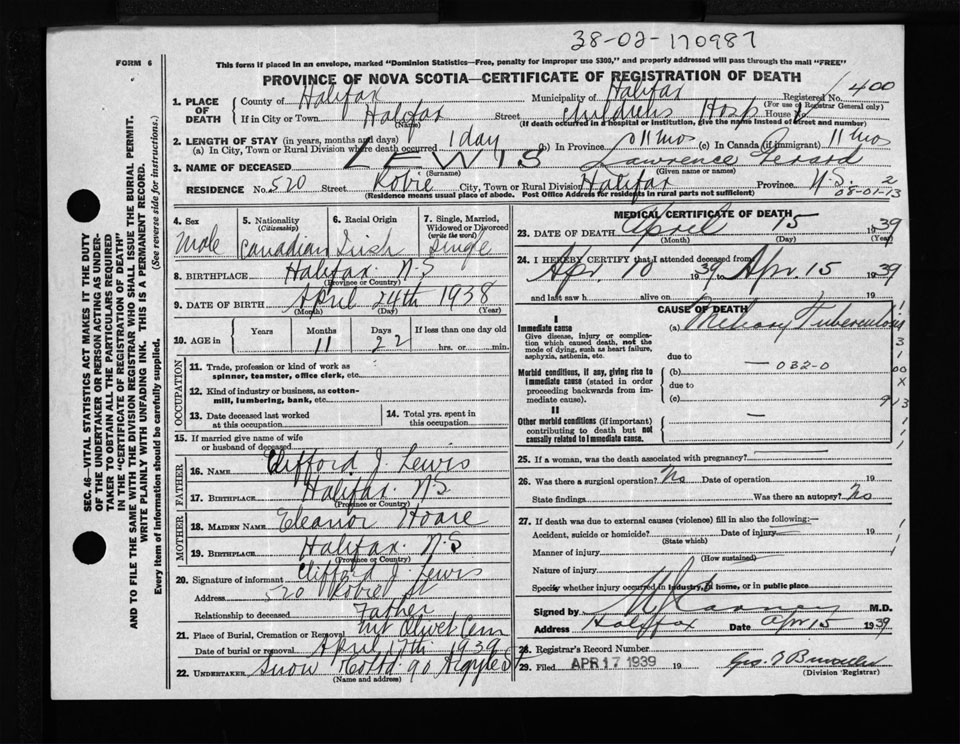 38-02-170987
FORM 6
This form if placed in an envelope, marked "Dominion Statistics—Free, penalty for improper use $300," and properly addressed will pass through the mail "FREE"
PROVINCE OF NOVA SCOTIA—CERTIFICATE OF REGISTRATION OF DEATH
1. PLACE OF DEATH County of Halifax Municipality of Halifax Registered No. 400
(For use of Registrar General only)
If in City or Town Halifax Street Childrens Hosp House
(Name) (If death occurred in a hospital or institution, give the name instead of street and number)
2. LENGTH OF STAY (in years, months and days)
(a) In City, Town or Rural Division where death occurred 1 day (b) In Province 11 mos (c) In Canada (if immigrant) 11 mos
3. NAME OF DECEASED LEWIS Lawrence Gerard
(Surname) (Given name or names)
RESIDENCE No. 520 Street Robie City, Town or Rural Division Halifax Province N.S. 2
(Residence means usual place of abode. Post Office Address for residents in rural parts not sufficient) 08-01-13
4. Sex 5. Nationality (Citizenship) 6. Racial Origin 7. Single, Married, Widowed or Divorced (write the word)
Male Canadian Irish Single
8. BIRTHPLACE Halifax N.S
(Province or Country)
9. DATE OF BIRTH April 24th 1938
(Month) (Day) (Year)
10. AGE in Years Months Days If less than one day old
11 22 hrs. or min.
OCCUPATION
11. Trade, profession or kind of work as spinner, teamster, office clerk, etc.
12. Kind of industry or business, as cotton-mill, lumbering, bank, etc.
13. Date deceased last worked at this occupation
14. Total yrs. spent in this occupation
15. If married give name of wife or husband of deceased
FATHER
16. NAME Clifford J. Lewis
17. BIRTHPLACE Halifax N.S
(Province or Country)
MOTHER
18. MAIDEN NAME Eleanor Hoare
19. BIRTHPLACE Halifax. N.S
(Province or Country)
20. Signature of informant Clifford J. Lewis
Address 520 Robie St
Relationship to deceased Father
21. Place of Burial, Cremation or Removal Mt Olivet Cem
Date of burial or removal April 17th 1939
22. UNDERTAKER Snow & Co Ltd 90 Argyle St
(Name and address)
MEDICAL CERTIFICATE OF DEATH
23. DATE OF DEATH April 15 1939
(Month) (Day) (Year)
24. I HEREBY CERTIFY that I attended deceased from
Apr. 10 1939 to Apr. 15 1939
and last saw h alive on 19
CAUSE OF DEATH
I
Immediate cause
Give disease, injury or complication which caused death, not the mode of dying, such as heart failure, asphyxia, asthenia, etc.
(a) Miliary Tuberculous
due to
Morbid conditions, if any, giving rise to immediate cause (stated in order proceeding backwards from immediate cause).
(b) 032-0
due to
(c)
II
Other morbid conditions (if important) contributing to death but not causally related to immediate cause.
25. If a woman, was the death associated with pregnancy?
26. Was there a surgical operation? No Date of operation 19
State findings Was there an autopsy? No
27. If death was due to external causes (violence) fill in also the following:—
Accident, suicide or homicide? Date of injury 19
(State which)
Manner of injury
(How sustained)
Nature of injury
Specify whether injury occurred in industry, in home, or in public place
Signed by M.D.
Address Halifax Date Apr 15 1939
28. Registrar's Record Number
29. Filed APR 17 1939 19
(Division Registrar)
SEC. 46—VITAL STATISTICS ACT MAKES IT THE DUTY
OF THE UNDERTAKER OR PERSON ACTING AS UNDER-
TAKER TO OBTAIN ALL THE PARTICULARS REQUIRED
IN THE "CERTIFICATE OF REGISTRATION OF DEATH"
AND TO FILE THE SAME WITH THE DIVISION REGISTRAR WHO SHALL ISSUE THE BURIAL PERMIT.
WRITE PLAINLY WITH UNFADING INK. THIS IS A PERMANENT RECORD.
Every item of information should be carefully supplied. (See reverse side for instructions.)